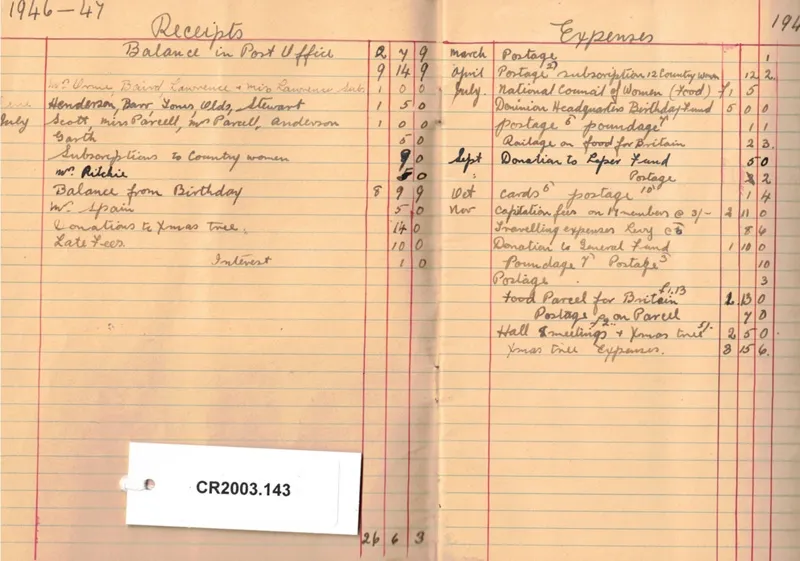 1946-47
Receipts
Balance in Post Office 2 7 9
9 14 9
Mrs Orme, Baird Lawrence + Miss Lawrence Subs 1 0 0
June Henderson, Barr, Jones, Olds, Stewart 1 5 0
July Scott, Miss Parcell, Mrs Parcell, Anderson 1 0 0
Garth 5 0
Subscriptions to Country women 9 0
Mrs Ritchie 5 0
Balance from Birthday 8 9 9
Mrs Spain 5 0
Donations to Xmas tree. 14 0
Late Fees 10 0
Interest 1 0
26 6 3
CR2003.143
194
Expenses
March Postage 1
April Postage 2 subscription 12 Country women 12 2
July. National Council of Women (Food) £1 5
Dominion Headquarters Birthday Fund 5 0 0
postage 6 poundage 7 1 1
Railage on food for Britain 2 3
Sept Donation to Leper Fund 5 0
" Postage 2
Oct cards 6 postage 10 1 4
Nov Capitation fees on 17 members @ 3/- 2 11 0
Travelling expenses Levy @ 6 8 6
Donation to General Fund 1 10 0
Poundage 7 Postage 3 10
Postage 3
Food Parcel for Britain £1.13 1 13 0
Postage on Parcel 7 0
Hall 8 meetings £2 + Xmas tree 5/- 2 5 0
Xmas tree Expenses. 3 15 6